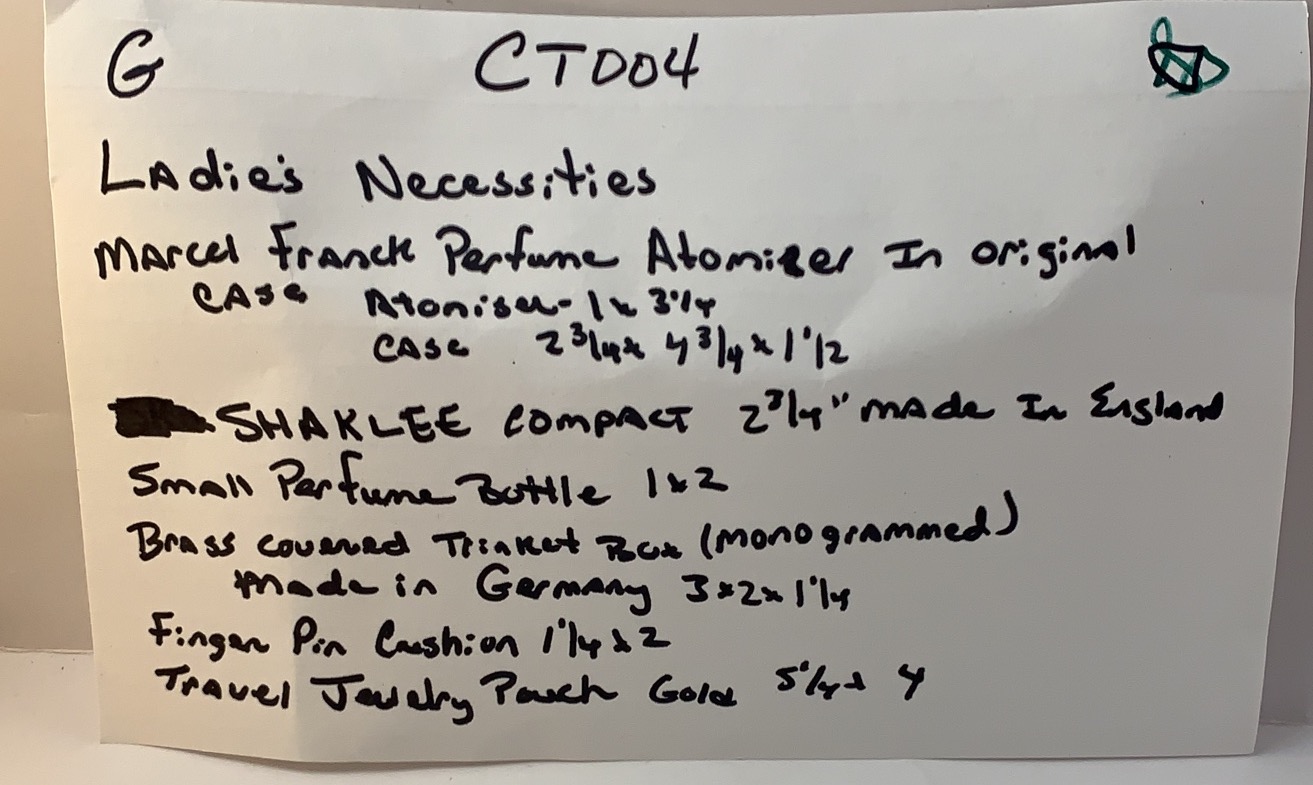 G CTD04
LAdie's Necessities
MArcel Franck Perfume Atomizer In original
CASe Atoniser - 1 x 3 1/4
CASe 2 3/4 x 4 3/4 x 1 1/2
SHAKLEE COMPACT 2 3/4" made In England
Small Perfume Bottle 1 x 2
Brass covered Trinket Box (monogrammed)
made in Germany 3 x 2 x 1 1/4
Finger Pin Cushion 1 1/4 x 2
Travel Jewelry Pouch Gold 5 1/4 x 4